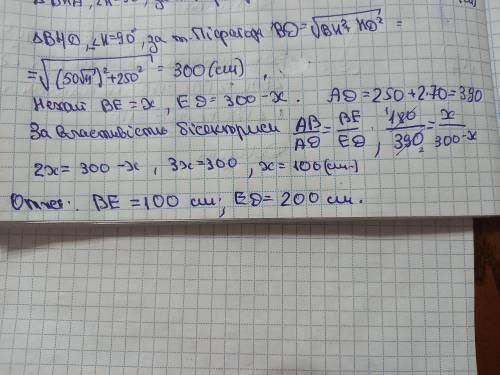 △BHD, ∠H=90°, за т. Піфагора BD=√BH²+HD² =
=√(50√11)²+250² = 300 (см)
Нехай BE=x, ED=300-x. AD=250+2·70=390
За властивістю бісектриси AB/AD=BE/ED; 180/390=x/300-x
2x=300-x, 3x=300, x=100 (см)
BE=100 см; ED=200 см.